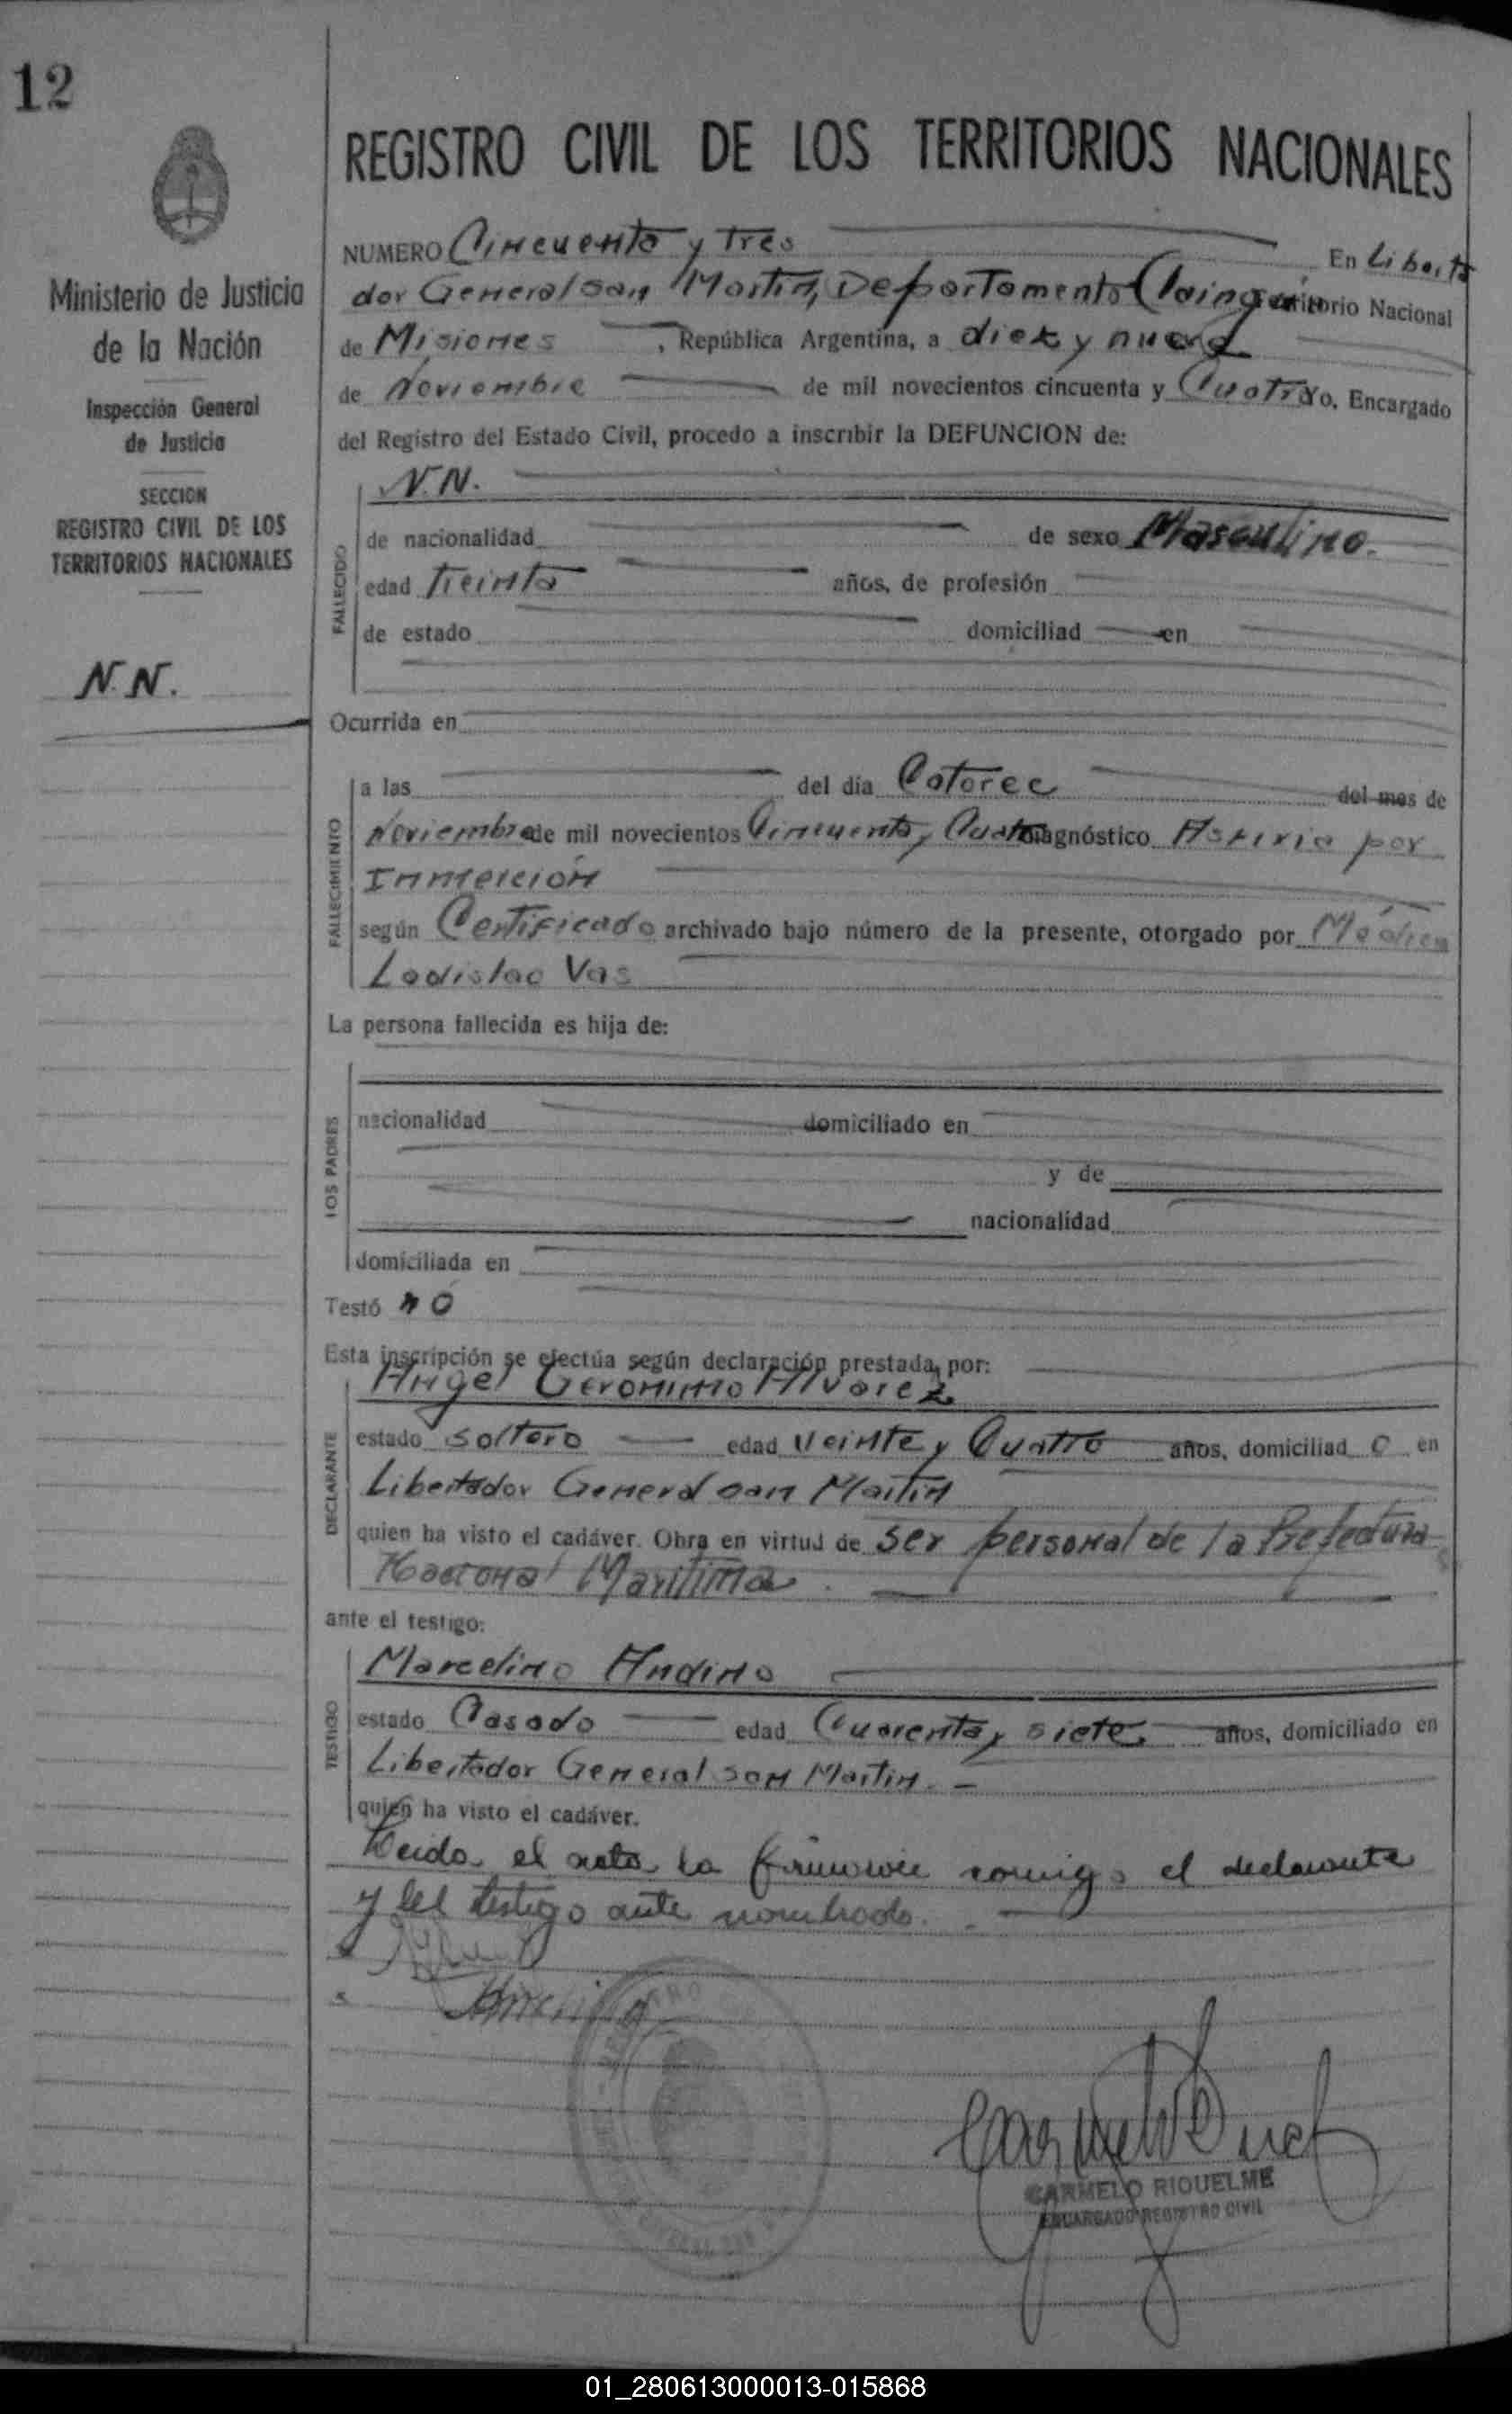 12
Ministerio de Justicia
de la Nación
Inspección General
de Justicia
SECCION
REGISTRO CIVIL DE LOS
TERRITORIOS NACIONALES
N.N.
REGISTRO CIVIL DE LOS TERRITORIOS NACIONALES
NUMERO Cincuenta y tres En Liberta
dor General San Martin, Departamento Territorio Nacional
de Misiones, República Argentina, a diez y nueve
de Noviembre de mil novecientos cincuenta y Cuatro Yo, Encargado
del Registro del Estado Civil, procedo a inscribir la DEFUNCION de:
N.N.
FALLECIDO
de nacionalidad de sexo Masculino.
edad Treinta años, de profesión
de estado domiciliad en
Ocurrida en
FALLECIMIENTO
a las del día Catorce del mes de
Noviembre de mil novecientos Cincuenta y Cuatro diagnóstico Asfixia por
Inmerción
según Certificado archivado bajo número de la presente, otorgado por Médico
Ladislao Vas
La persona fallecida es hija de:
LOS PADRES
nacionalidad domiciliado en
y de
nacionalidad
domiciliada en
Testó nó
Esta inscripción se efectúa según declaración prestada por:
Angel Geronimo Alvarez
DECLARANTE
estado soltero edad veinte y Cuatro años, domiciliad o en
Libertador General San Martin
quien ha visto el cadáver. Obra en virtud de ser personal de la Prefectura
Nacional Maritima.
ante el testigo:
Marcelino Andino
TESTIGO
estado Casado edad Cuarenta y siete años, domiciliado en
Libertador General San Martin. -
quien ha visto el cadáver.
Leida el acta la firmaron conmigo el declarante
y el testigo ante nombrado.
CARMELO RIQUELME
ENCARGADO REGISTRO CIVIL
01_280613000013-015868